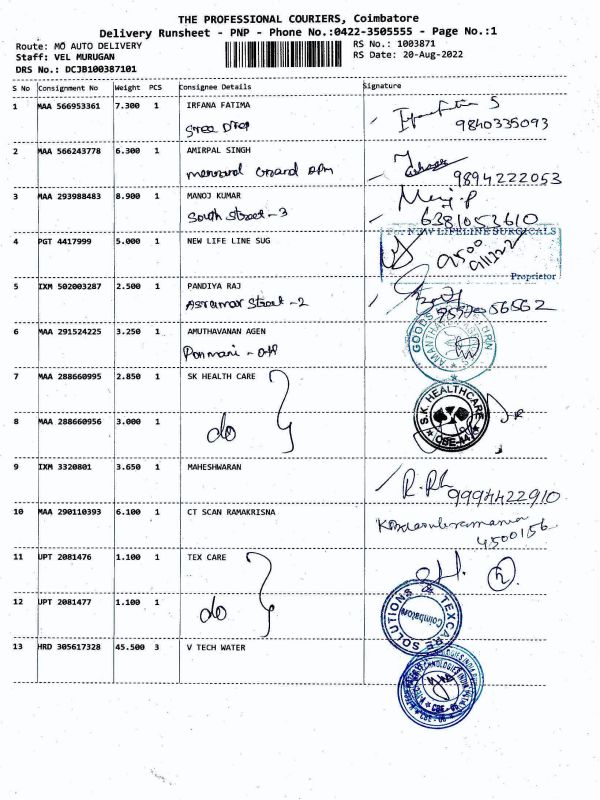 THE PROFESSIONAL COURIERS, Coimbatore
Delivery Runsheet - PNP - Phone No.:0422-3505555 - Page No.:1
Route: MO AUTO DELIVERY RS No.: 1003871
Staff: VEL MURUGAN RS Date: 20-Aug-2022
DRS No.: DCJB100387101
S No Consignment No Weight PCS Consignee Details Signature
1 MAA 566953361 7.300 1 IRFANA FATIMA
9840335093
2 MAA 566243778 6.300 1 AMIRPAL SINGH
9894222053
3 MAA 293988483 8.900 1 MANOJ KUMAR
South Street-3 6381053610
4 PGT 4417999 5.000 1 NEW LIFE LINE SUG
For NEW LIFELINE SURGICALS
Proprietor
5 IXM 502003287 2.500 1 PANDIYA RAJ
Street-2
6 MAA 291524225 3.250 1 AMUTHAVANAN AGEN
GOODS
7 MAA 288660995 2.850 1 SK HEALTH CARE
S.K. HEALTHCARE
8 MAA 288660956 3.000 1
do
9 IXM 3320801 3.650 1 MAHESHWARAN
9994422910
10 MAA 290110393 6.100 1 CT SCAN RAMAKRISNA
4500156
11 UPT 2081476 1.100 1 TEX CARE
12 UPT 2081477 1.100 1
do
TEXCARE SOLUTIONS
Coimbatore
13 HRD 305617328 45.500 3 V TECH WATER